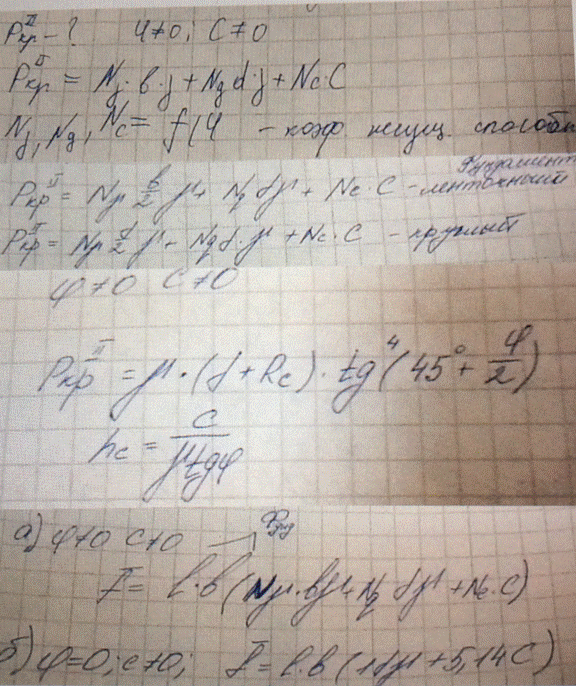 Pкр^II - ? φ≠0; C≠0
Pкр^II = Nγ·в·γ + Nq d·γ + Nc C
Nγ, Nq, Nc = f(φ - коэф несущ. способн
Фундамент
Pкр^II = Nγ в/2 γ + Nq dγ + Nc·C - ленточный
Pкр^II = Nγ d/2 γ + Nq d·γ + Nc·C - круглый
φ≠0 C≠0
Pкр^II = γ·(d + hc)·tg⁴(45° + φ/2)
hc = C/γtgφ
а) φ≠0 C≠0
F = l·в(Nγ·вγ + Nq dγ + Nc·C)
б) φ=0; c≠0; F = l·в (1dγ + 5,14C)